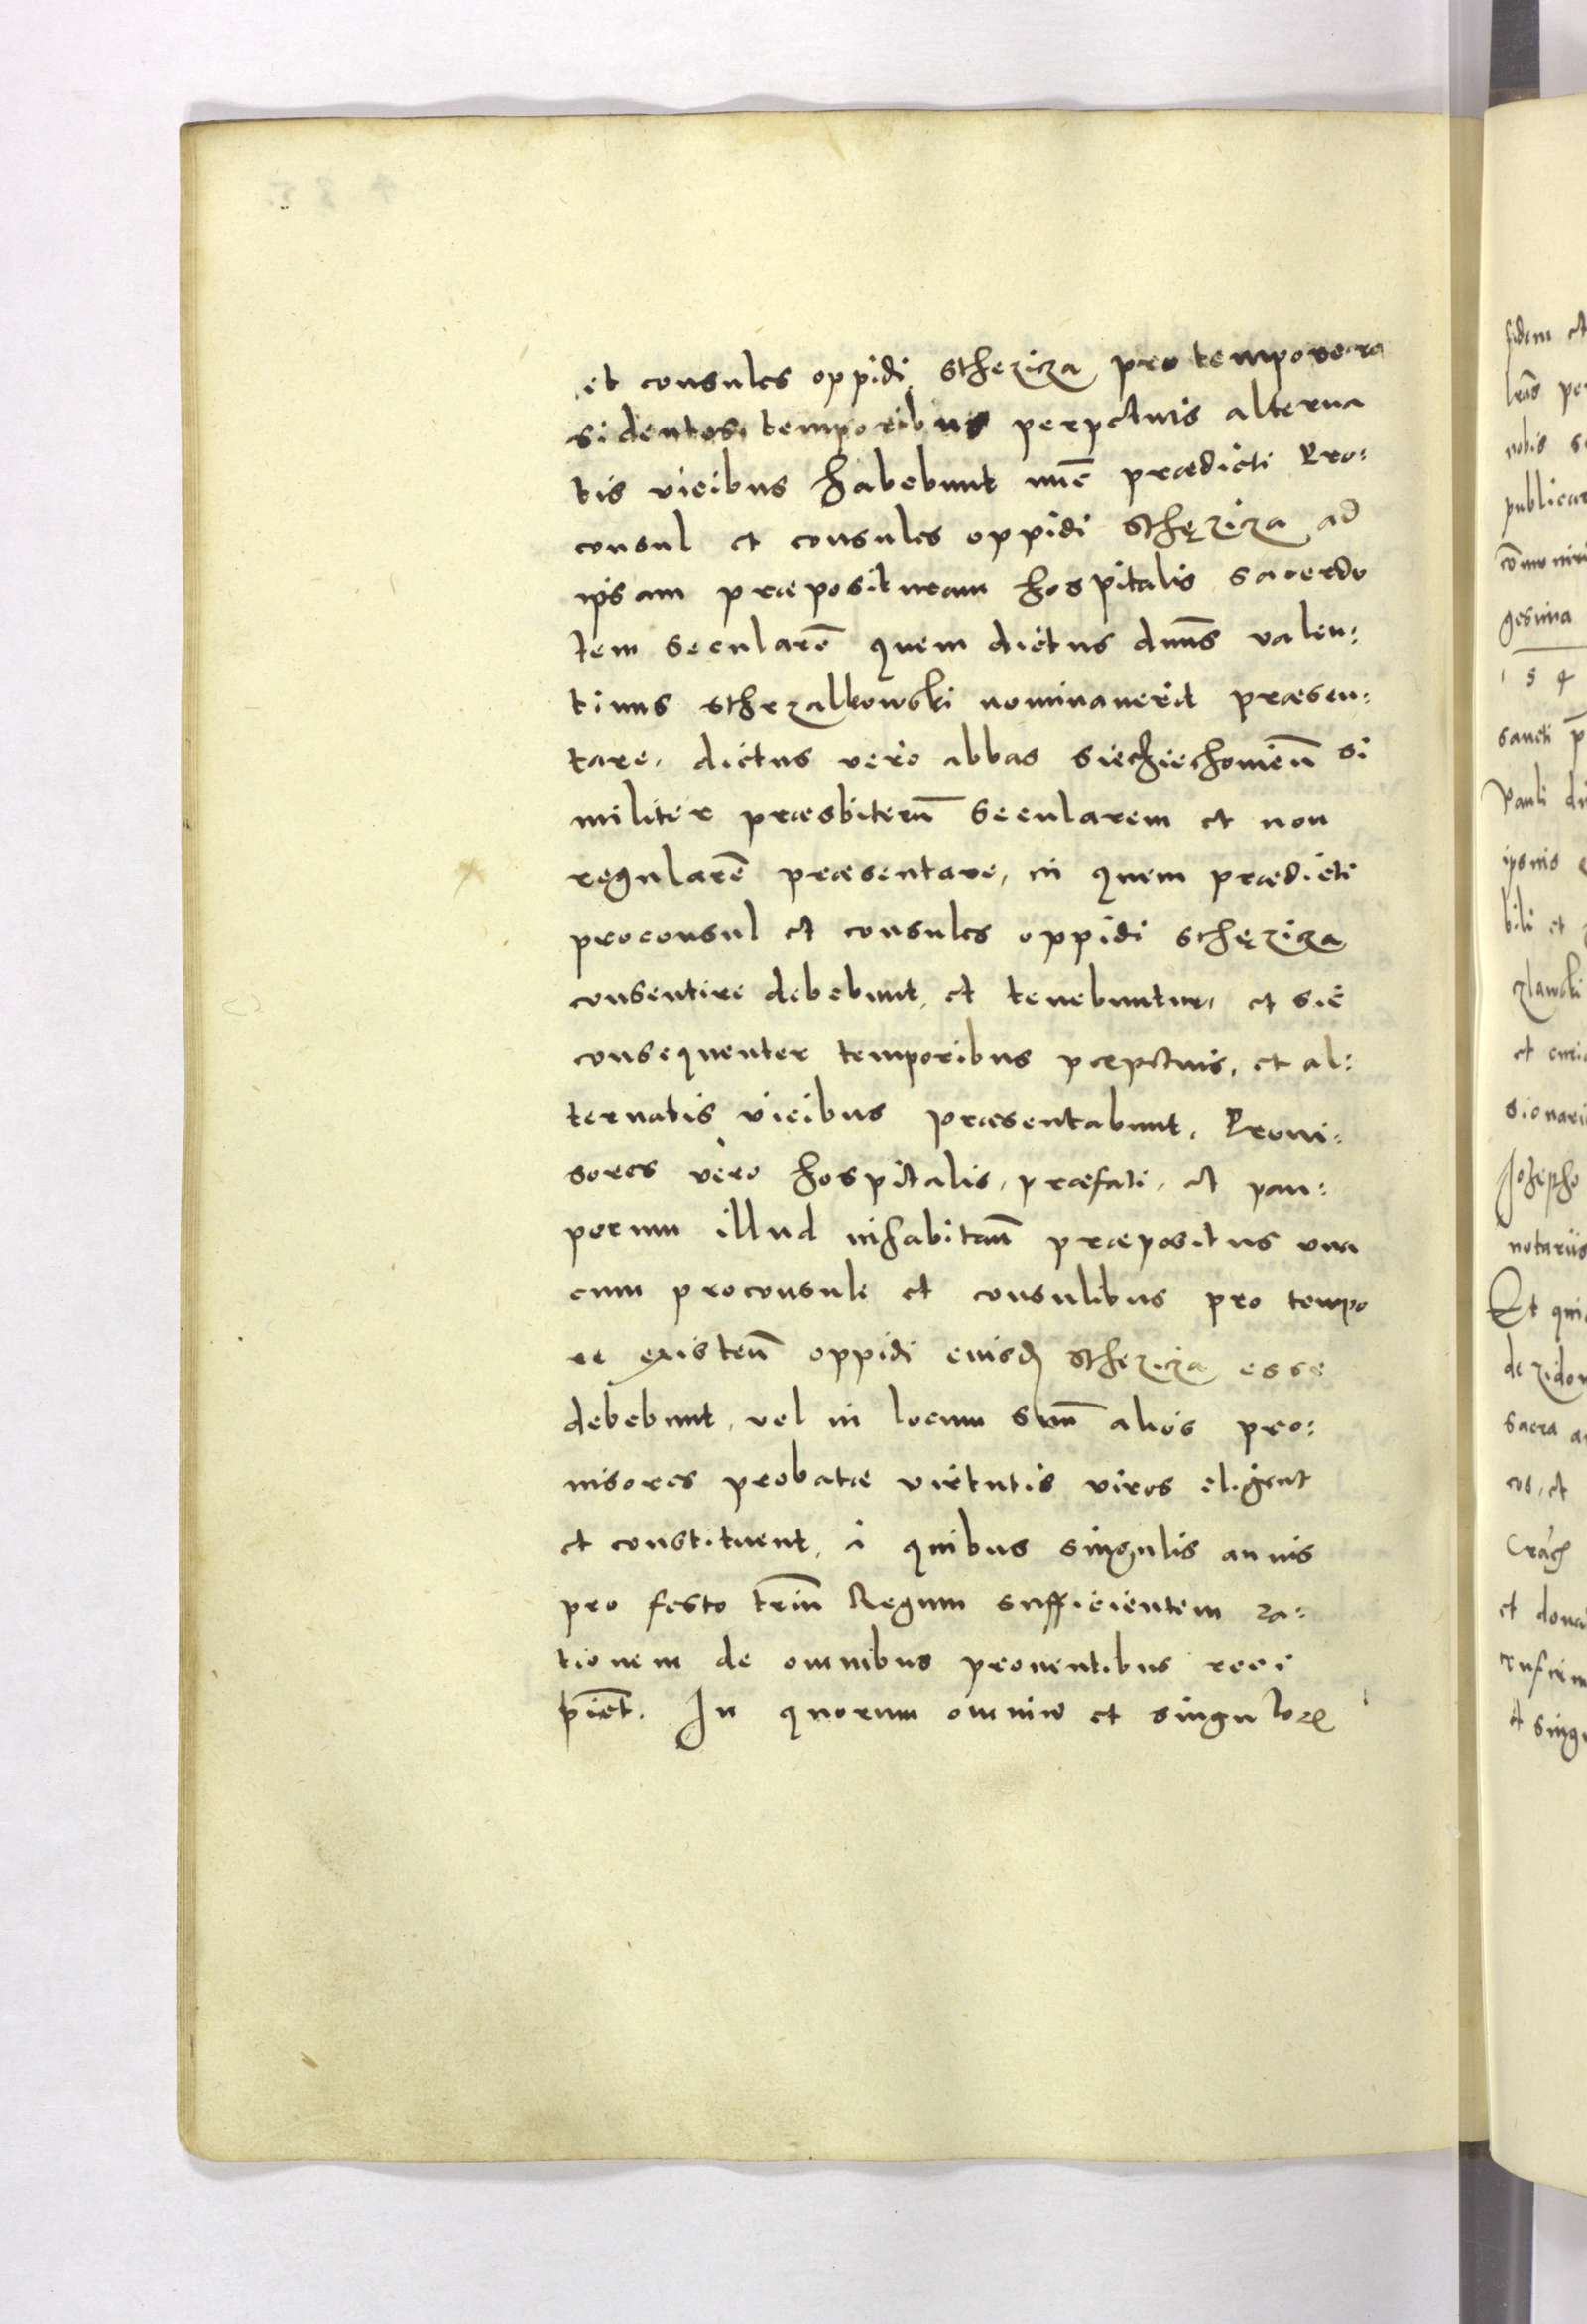 et consules oppidi Stheziza pro tempore ra
sidentes temporibus perpetuis alterna
tis vicibus habebunt nūc prædicti Pro:
consul et consules oppidi Sthęziza ad
ipsam præposituram hospitalis sacerdo
tem secularē quem dictus dnūs valen:
tinus sthrzalkowski nominauerit præsen:
tare, dictus vero abbas siecziechouieñ si
militer præsbiterū secularem et non
regularē præsentare, in quem prædicti
proconsul et consules oppidi sthęziza
consentire debebunt, et tenebuntur, et sic
consequenter temporibus perpetuis, et al:
ternatis vicibus præsentabunt, Proui:
sores vero hospitalis, præfati, et pau:
perum illud inhabitañ præpositus vna
cum proconsule et consulibus pro tempo
re existeñ oppidi eiusdꝫ Stheziza esse
debebunt, vel in locum suū alios pro:
uisores probatæ virtutis viros eligent
et constituent, à quibus singulis annis
pro festo triū Regum sufficientem ra:
tionem de omnibus prouentibus reci
pient. In quorum omniū et singulorꝝ
fidem et
nobis
publicar
gesima
1 5 4
sancti
Pauli
ipsius
bili et
et
sionari
notariis
Et qui
de
sacra
cos, et
et dona
et singu